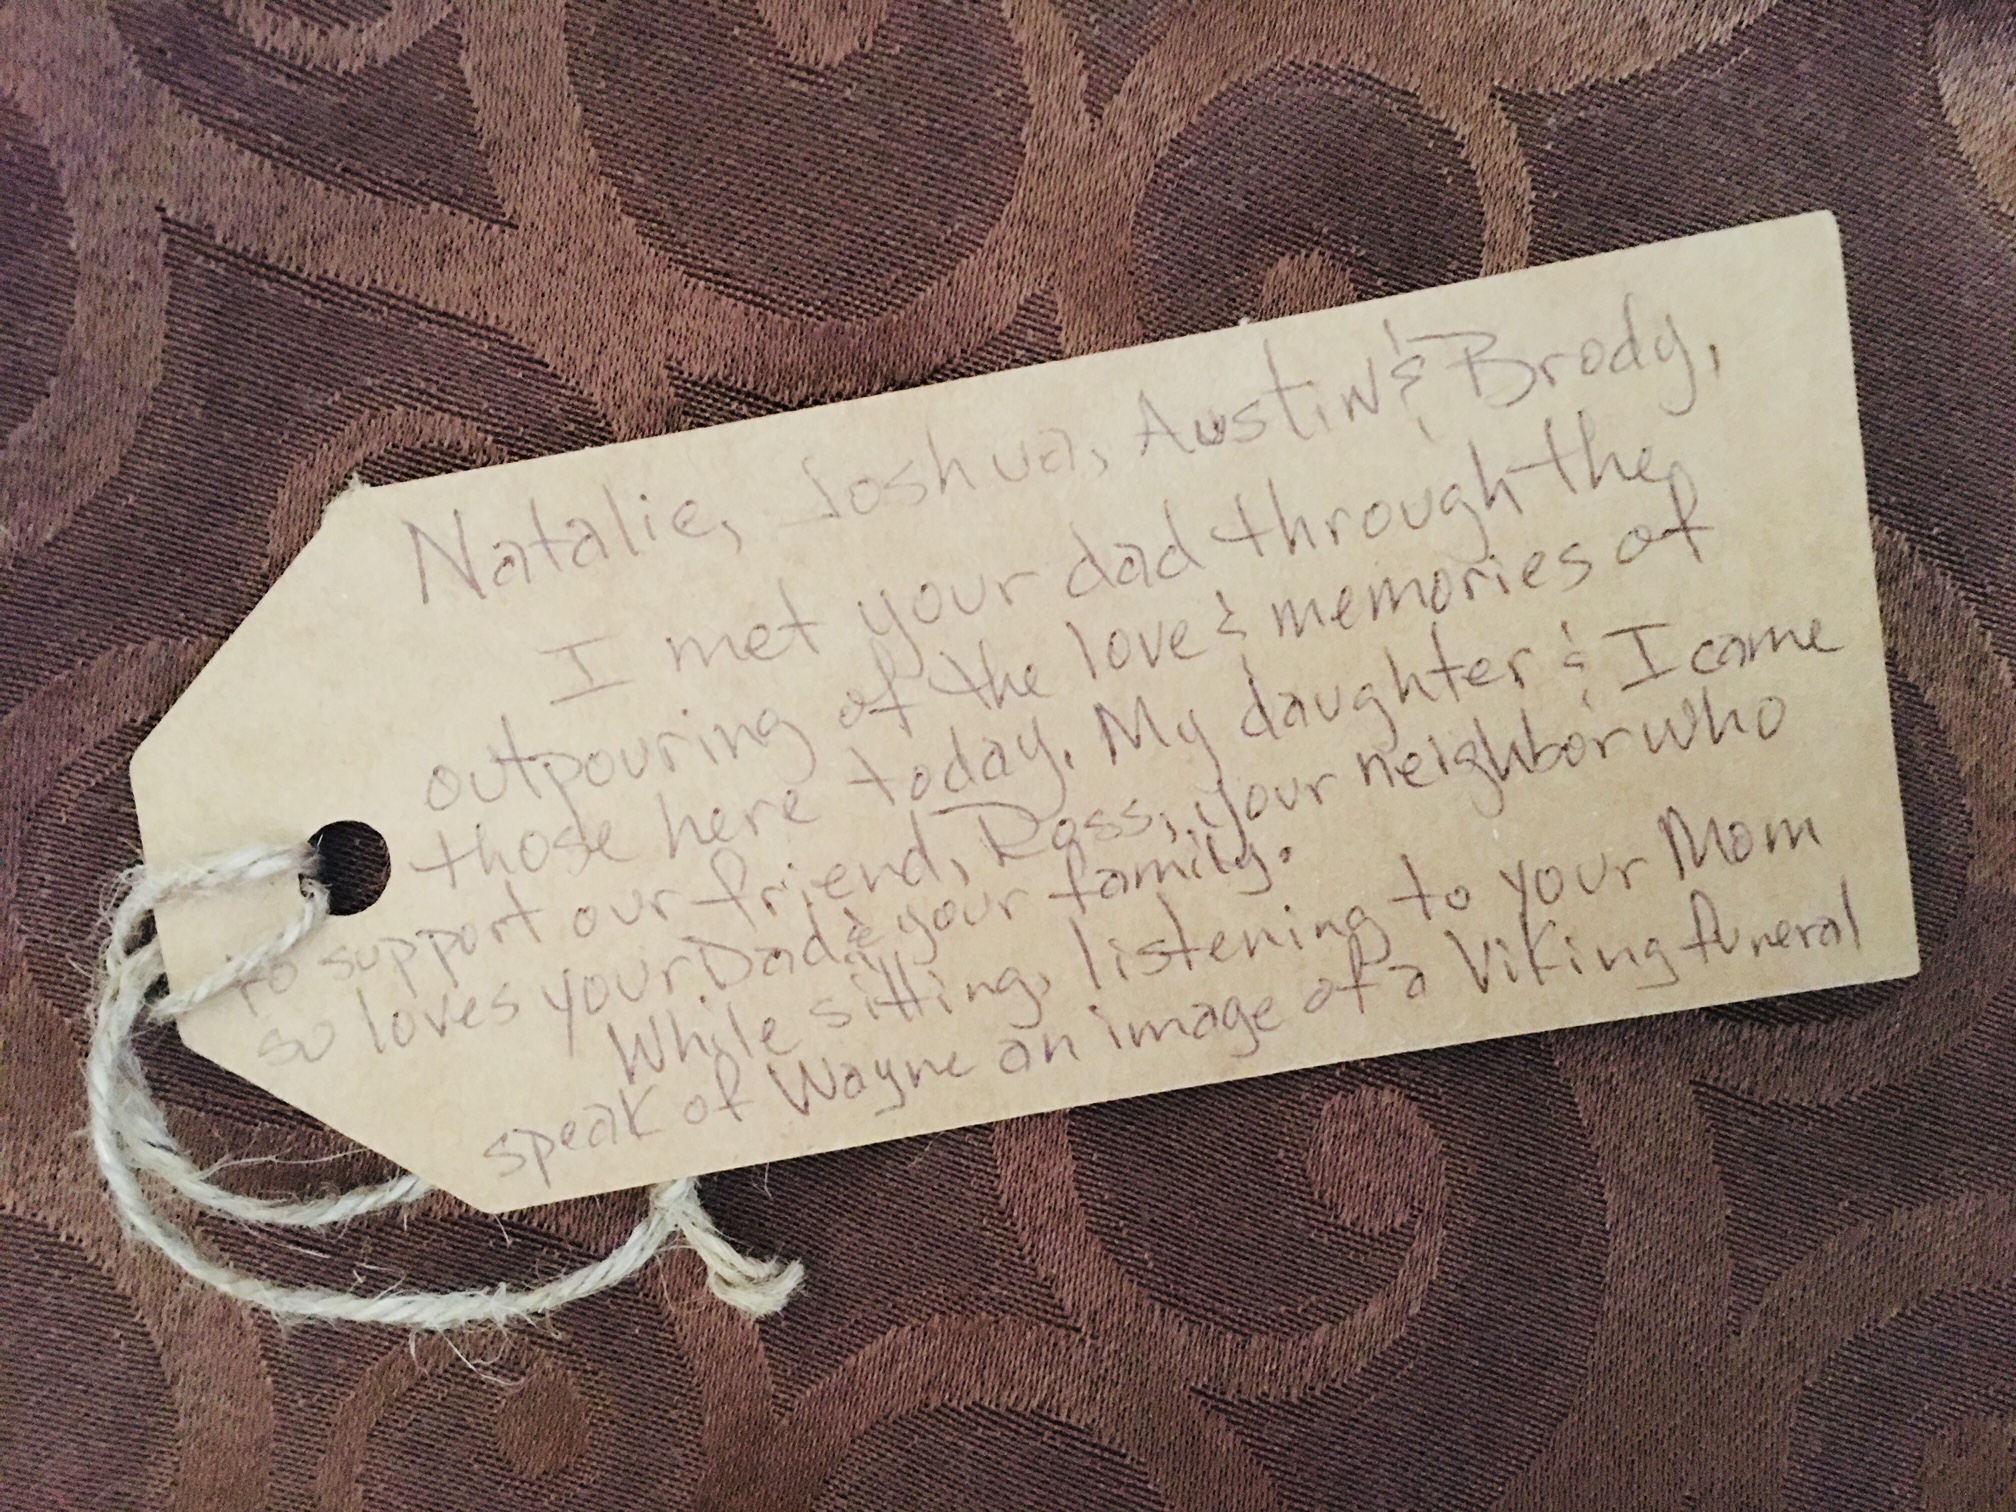 Natalie, Joshua, Austin & Brody,
I met your dad through the
outpouring of the love & memories of
those here today. My daughter & I came
to support our friend, Ross, your neighbor who
so loves your Dad & your family.
While sitting, listening to your Mom
speak of Wayne an image of a Viking funeral